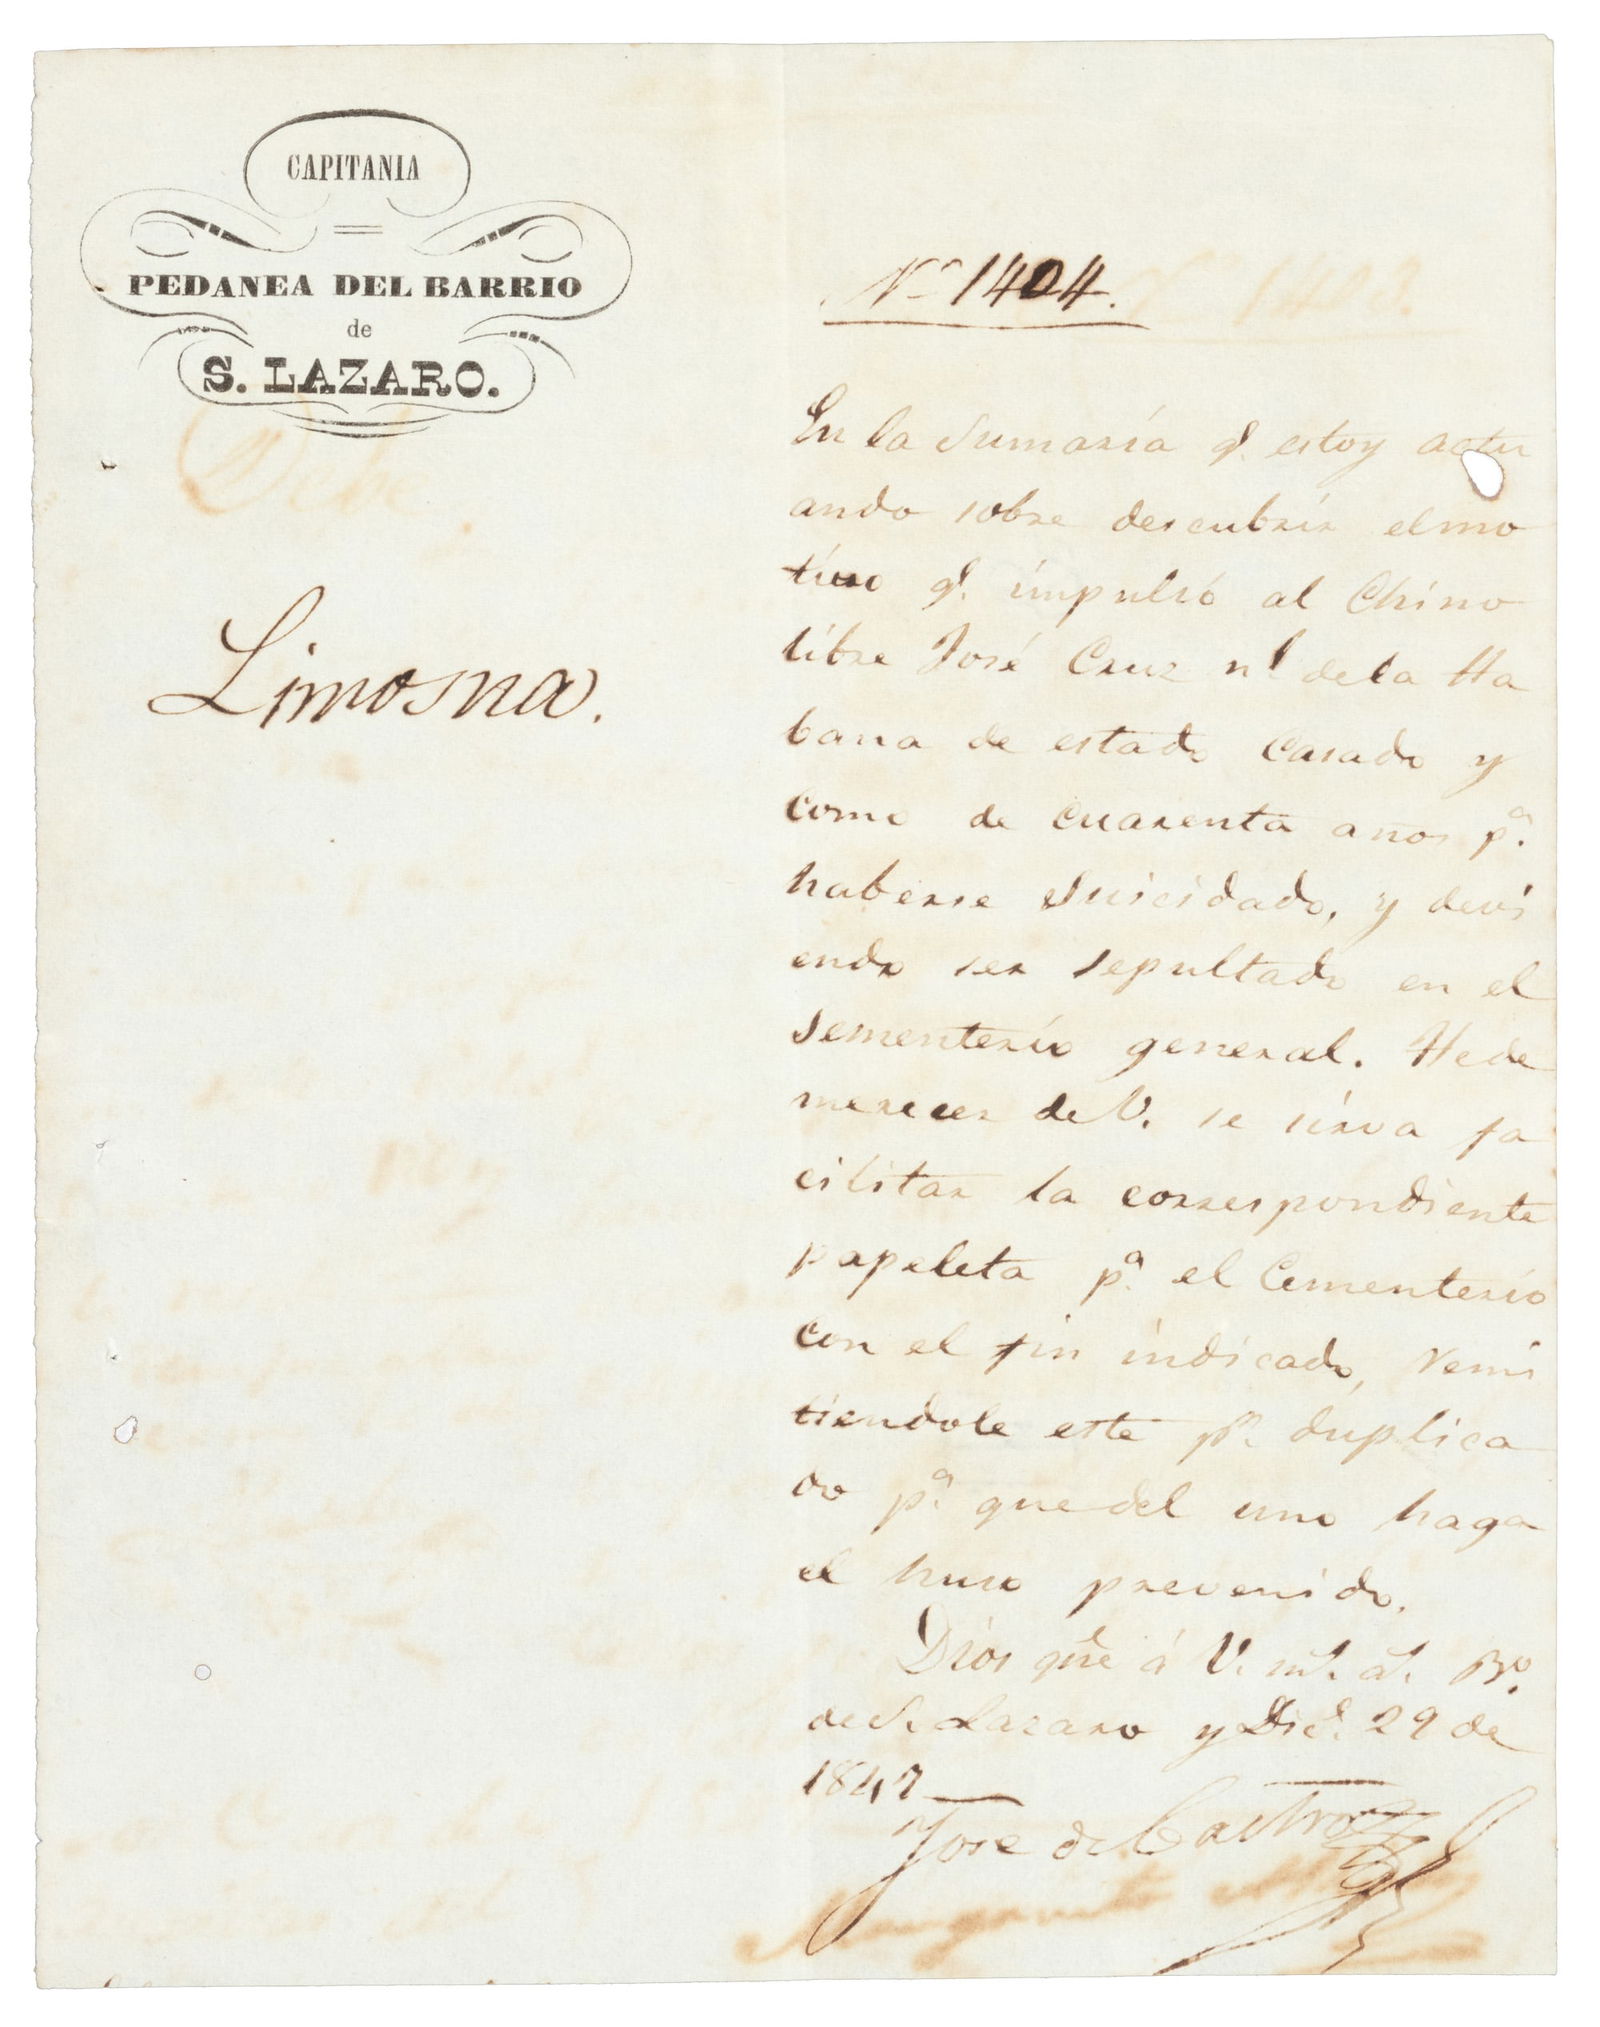 CAPITANIA
PEDANEA DEL BARRIO
de
S. LAZARO.
Debe.
Limosna.
Nº 1404.
Nº 1403.
En la Sumaría qᵉ. estoy actu
ando sobre descubrir el mo
tivo qᵉ. impulsó al Chino
libre José Cruz nˡ de la Ha
bana de estado casado y
como de cuarenta años pª.
haberse suicidado, y devi
endo ser sepultado en el
sementerio general. He de
merecer de V. se sirva fa
cilitar la correspondiente
papeleta pª. el Cementerio
con el fin indicado, remi
tiendole este pʳ. duplica
do pª. que del uno haga
el huso prevenido.
Dios gᵘᵉ á V. mˢ. aˢ. Bº.
de S. Lazaro y Dicᵉ. 29 de
1847
José de Castro